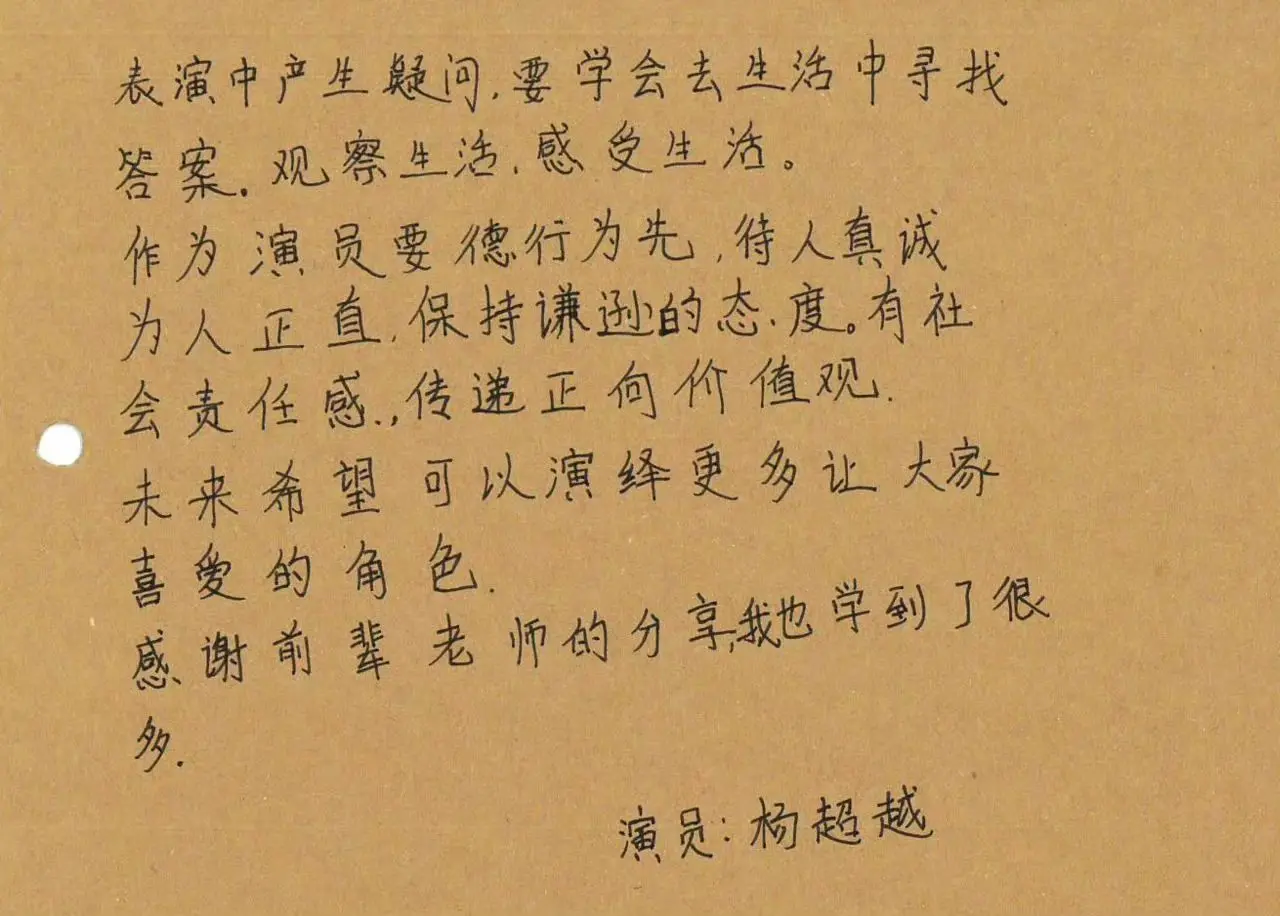 表演中产生疑问,要学会去生活中寻找
答案。观察生活,感受生活。
作为演员要德行为先,待人真诚
为人正直,保持谦逊的态度。有社
会责任感.,传递正向价值观.
未来希望可以演绎更多让大家
喜爱的角色.
感谢前辈老师的分享,我也学到了很
多.
演员:杨超越